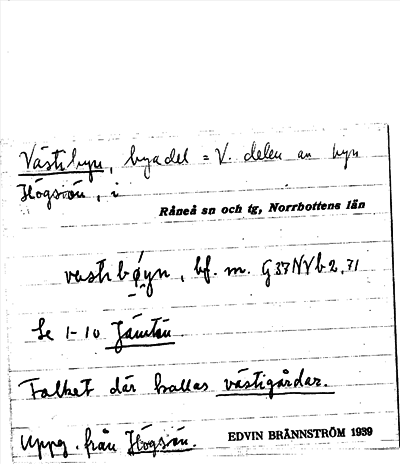 Västibyn, byadel = V. delen av byn
Högsön, i
Råneå sn och tg, Norrbottens län
vastıbǿyn, bf. m. G37NVb2,71
Se 1-10 Jämtön
Folket där kallas västigårdar.
Uppg. från Högsön. EDVIN BRÄNNSTRÖM 1939